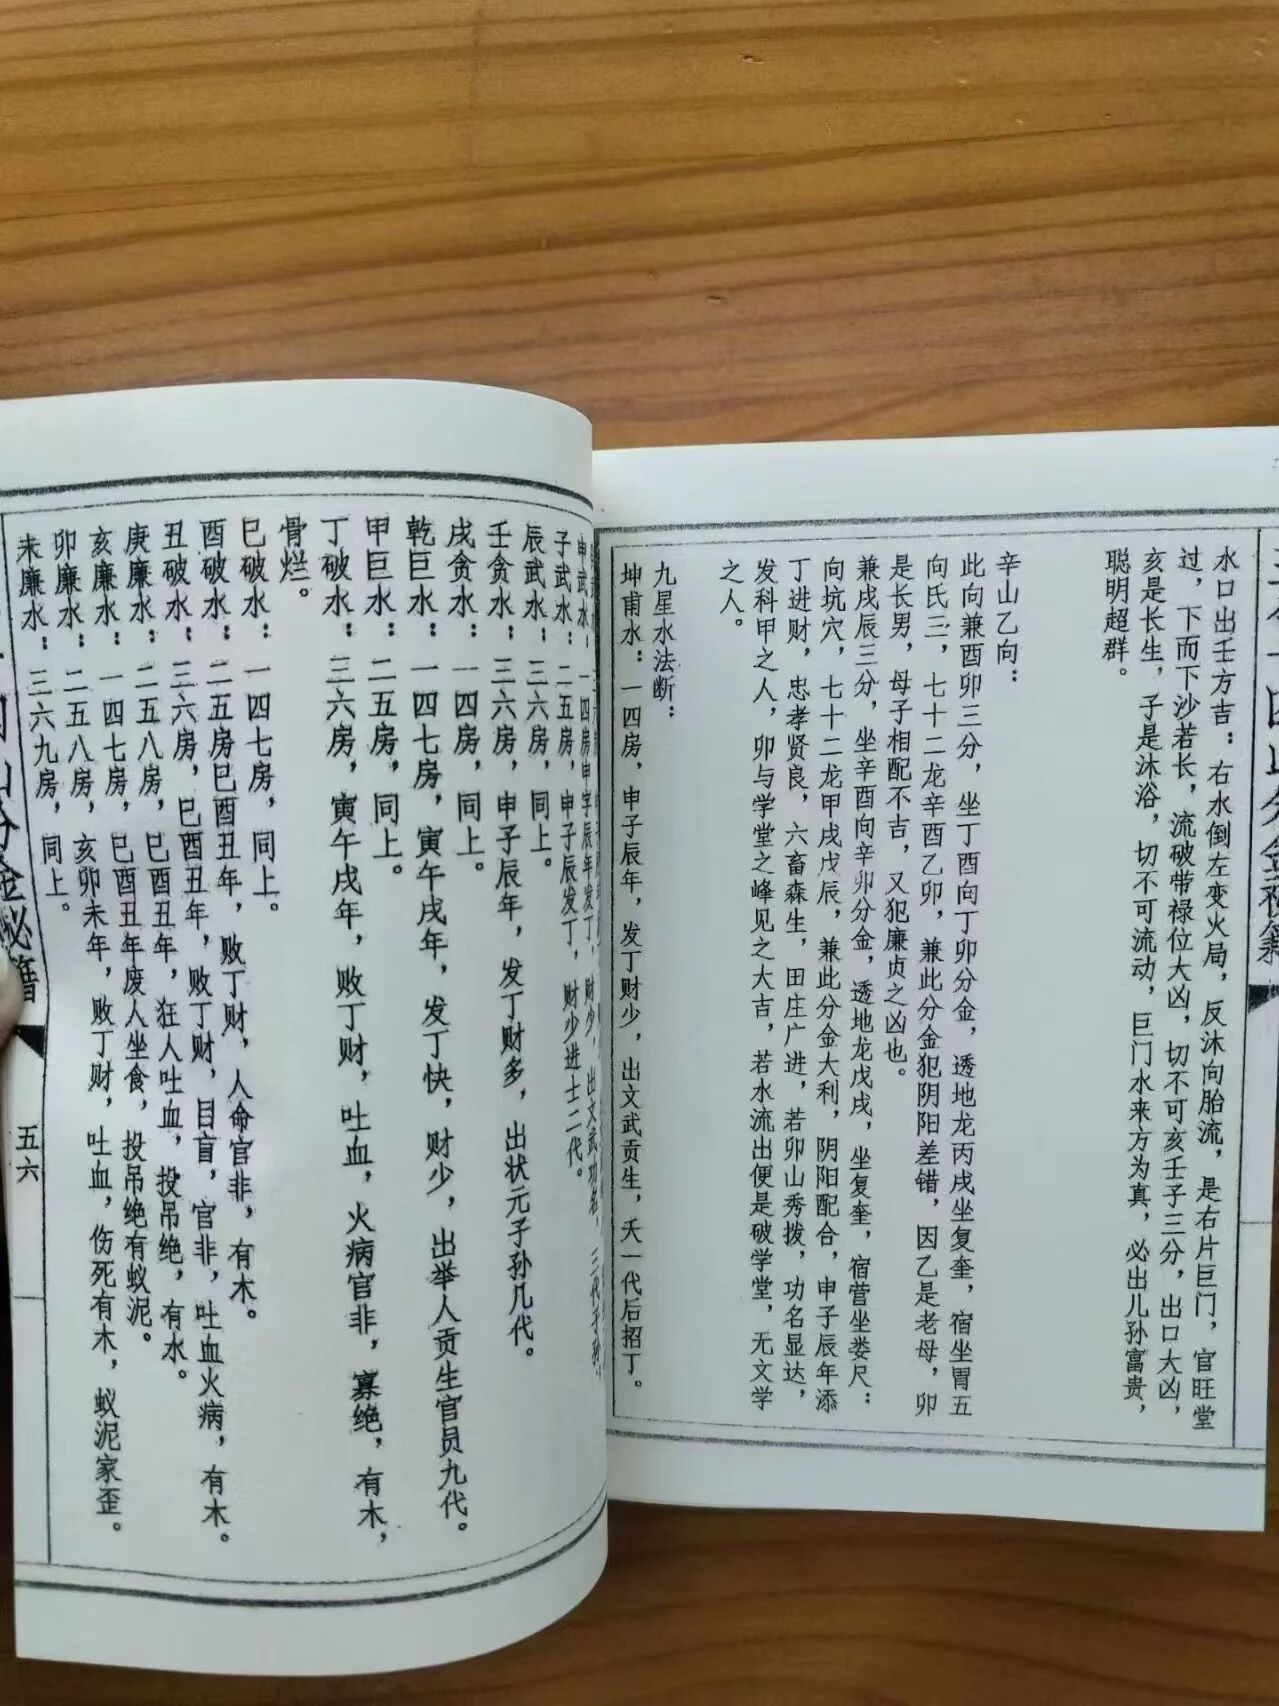 水口出壬方吉：右水倒左变火局，反沐向胎流，是右片巨门，官旺堂
过，下而下沙若长，流破带禄位大凶，切不可亥壬子三分，出口大凶，
亥是长生，子是沐浴，切不可流动，巨门水来方为真，必出儿孙富贵，
聪明超群。
辛山乙向：
此向兼酉卯三分，坐丁酉向丁卯分金，透地龙丙戌坐复奎，宿坐胃五
向氏三，七十二龙辛酉乙卯，兼此分金犯阴阳差错，因乙是老母，卯
是长男，母子相配不吉，又犯廉贞之凶也。
兼戌辰三分，坐辛酉向辛卯分金，透地龙戊戌，坐复奎，宿营坐娄尺：
向坑穴，七十二龙甲戌戊辰，兼此分金大利，阴阳配合，申子辰年添
丁进财，忠孝贤良，六畜森生，田庄广进，若卯山秀拨，功名显达，
发科甲之人，卯与学堂之峰见之大吉，若水流出便是破学堂，无文学
之人。
九星水法断：
坤甫水：一四房，申子辰年，发丁财少，出文武贡生，夭一代后招丁。
申武水：一四房申字辰年发丁，财少，出文武功名，三代子孙。
子武水：二五房，申子辰发丁，财少进士二代。
辰武水：三六房，同上。
壬贪水：三六房，申子辰年，发丁财多，出状元子孙几代。
戌贪水：一四房，同上。
乾巨水：一四七房，寅午戌年，发丁快，财少，出举人贡生官员九代。
甲巨水：二五房，同上。
丁破水：三六房，寅午戌年，败丁财，吐血，火病官非，寡绝，有木，
骨烂。
巳破水：一四七房，同上。
酉破水：二五房巳酉丑年，败丁财，人命官非，有木。
丑破水：三六房，巳酉丑年，败丁财，目盲，官非，吐血火病，有木。
庚廉水：二五八房，巳酉丑年，狂人吐血，投吊绝，有水。
亥廉水：一四七房，巳酉丑年废人坐食，投吊绝有蚁泥。
卯廉水：二五八房，亥卯未年，败丁财，吐血，伤死有木，蚁泥家歪。
未廉水：三六九房，同上。
山分金秘籍
五六